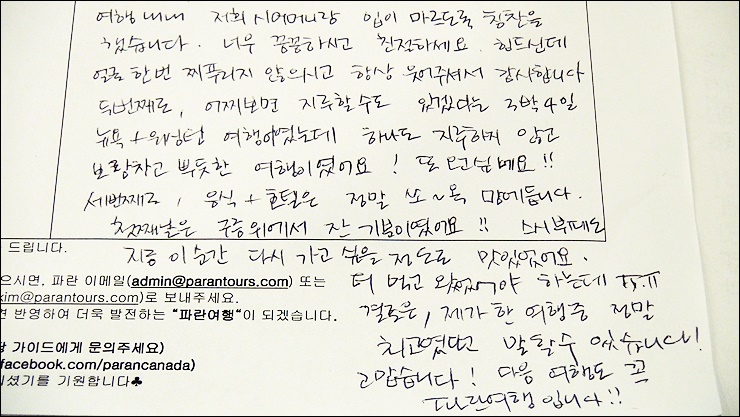 여행 내내 저희 시어머니랑 입이 마르도록 칭찬을
했습니다. 너무 꼼꼼하시고 친절하세요. 힘드신데
얼굴 한번 찌푸리지 않으시고 항상 웃어주셔서 감사합니다
두번째로, 어찌보면 지루할수도 있겠다는 3박4일
뉴욕 + 워싱턴 여행이였는데 하나도 지루하지 않고
보람차고 뿌듯한 여행이였어요! 또 오고싶네요!!
세번째로, 음식 + 호텔은 정말 쏘~옥 맘에듭니다.
첫째날은 구름위에서 잔 기분이였어요!! 스시부페도
지금 이 순간 다시 가고 싶을 정도로 맛있었어요.
더 먹고 왔었어야 하는데 ㅠ.ㅠ
결론은, 제가 한 여행중 정말
최고였다고 말할수 있습니다!
고맙습니다! 다음 여행도 꼭
파란여행 입니다!!
드립니다.
으시면, 파란 이메일(admin@parantours.com) 또는
kim@parantours.com)로 보내주세요.
반영하여 더욱 발전하는 "파란여행"이 되겠습니다.
가이드에게 문의주세요)
facebook.com/parancanada)
되셨기를 기원합니다♣